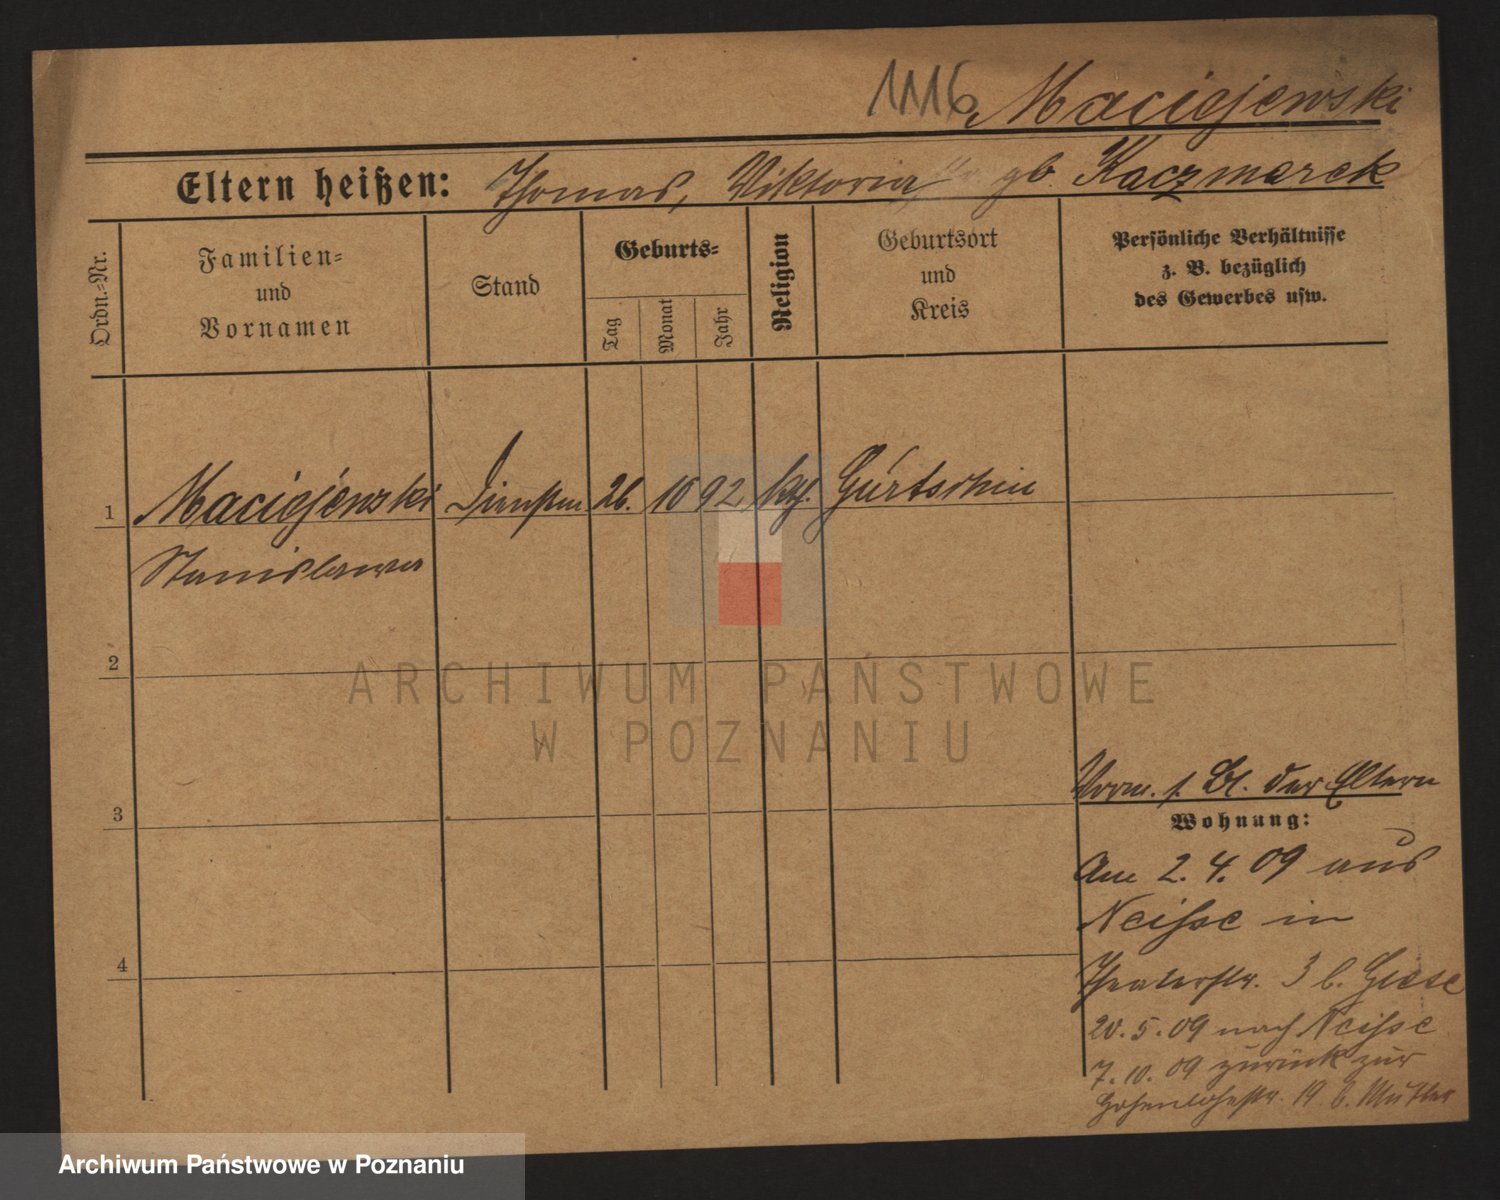 1116 Maciejewski
Eltern heißen: Thomas, Viktoria, gb. Kaczmarek
Ordn.-Nr.
Familien-
und
Vornamen
Stand
Geburts-
Tag
Monat
Jahr
Religion
Geburtsort
und
Kreis
Persönliche Verhältnisse
z. B. bezüglich
des Gewerbes usw.
1 Maciejewski Dienstm. 26. 10 92 kth. Gurtschin
Stanislawa
2
3
4
Vorm. s. Bl. der Eltern
Wohnung:
Am 2. 4. 09 aus
Neisse in
Theaterstr. 3 b. Giese
20. 5. 09 nach Neisse
7. 10. 09 zurück zur
Hohenlohestr. 19 b. Mutter
ARCHIWUM PAŃSTWOWE
W POZNANIU
Archiwum Państwowe w Poznaniu